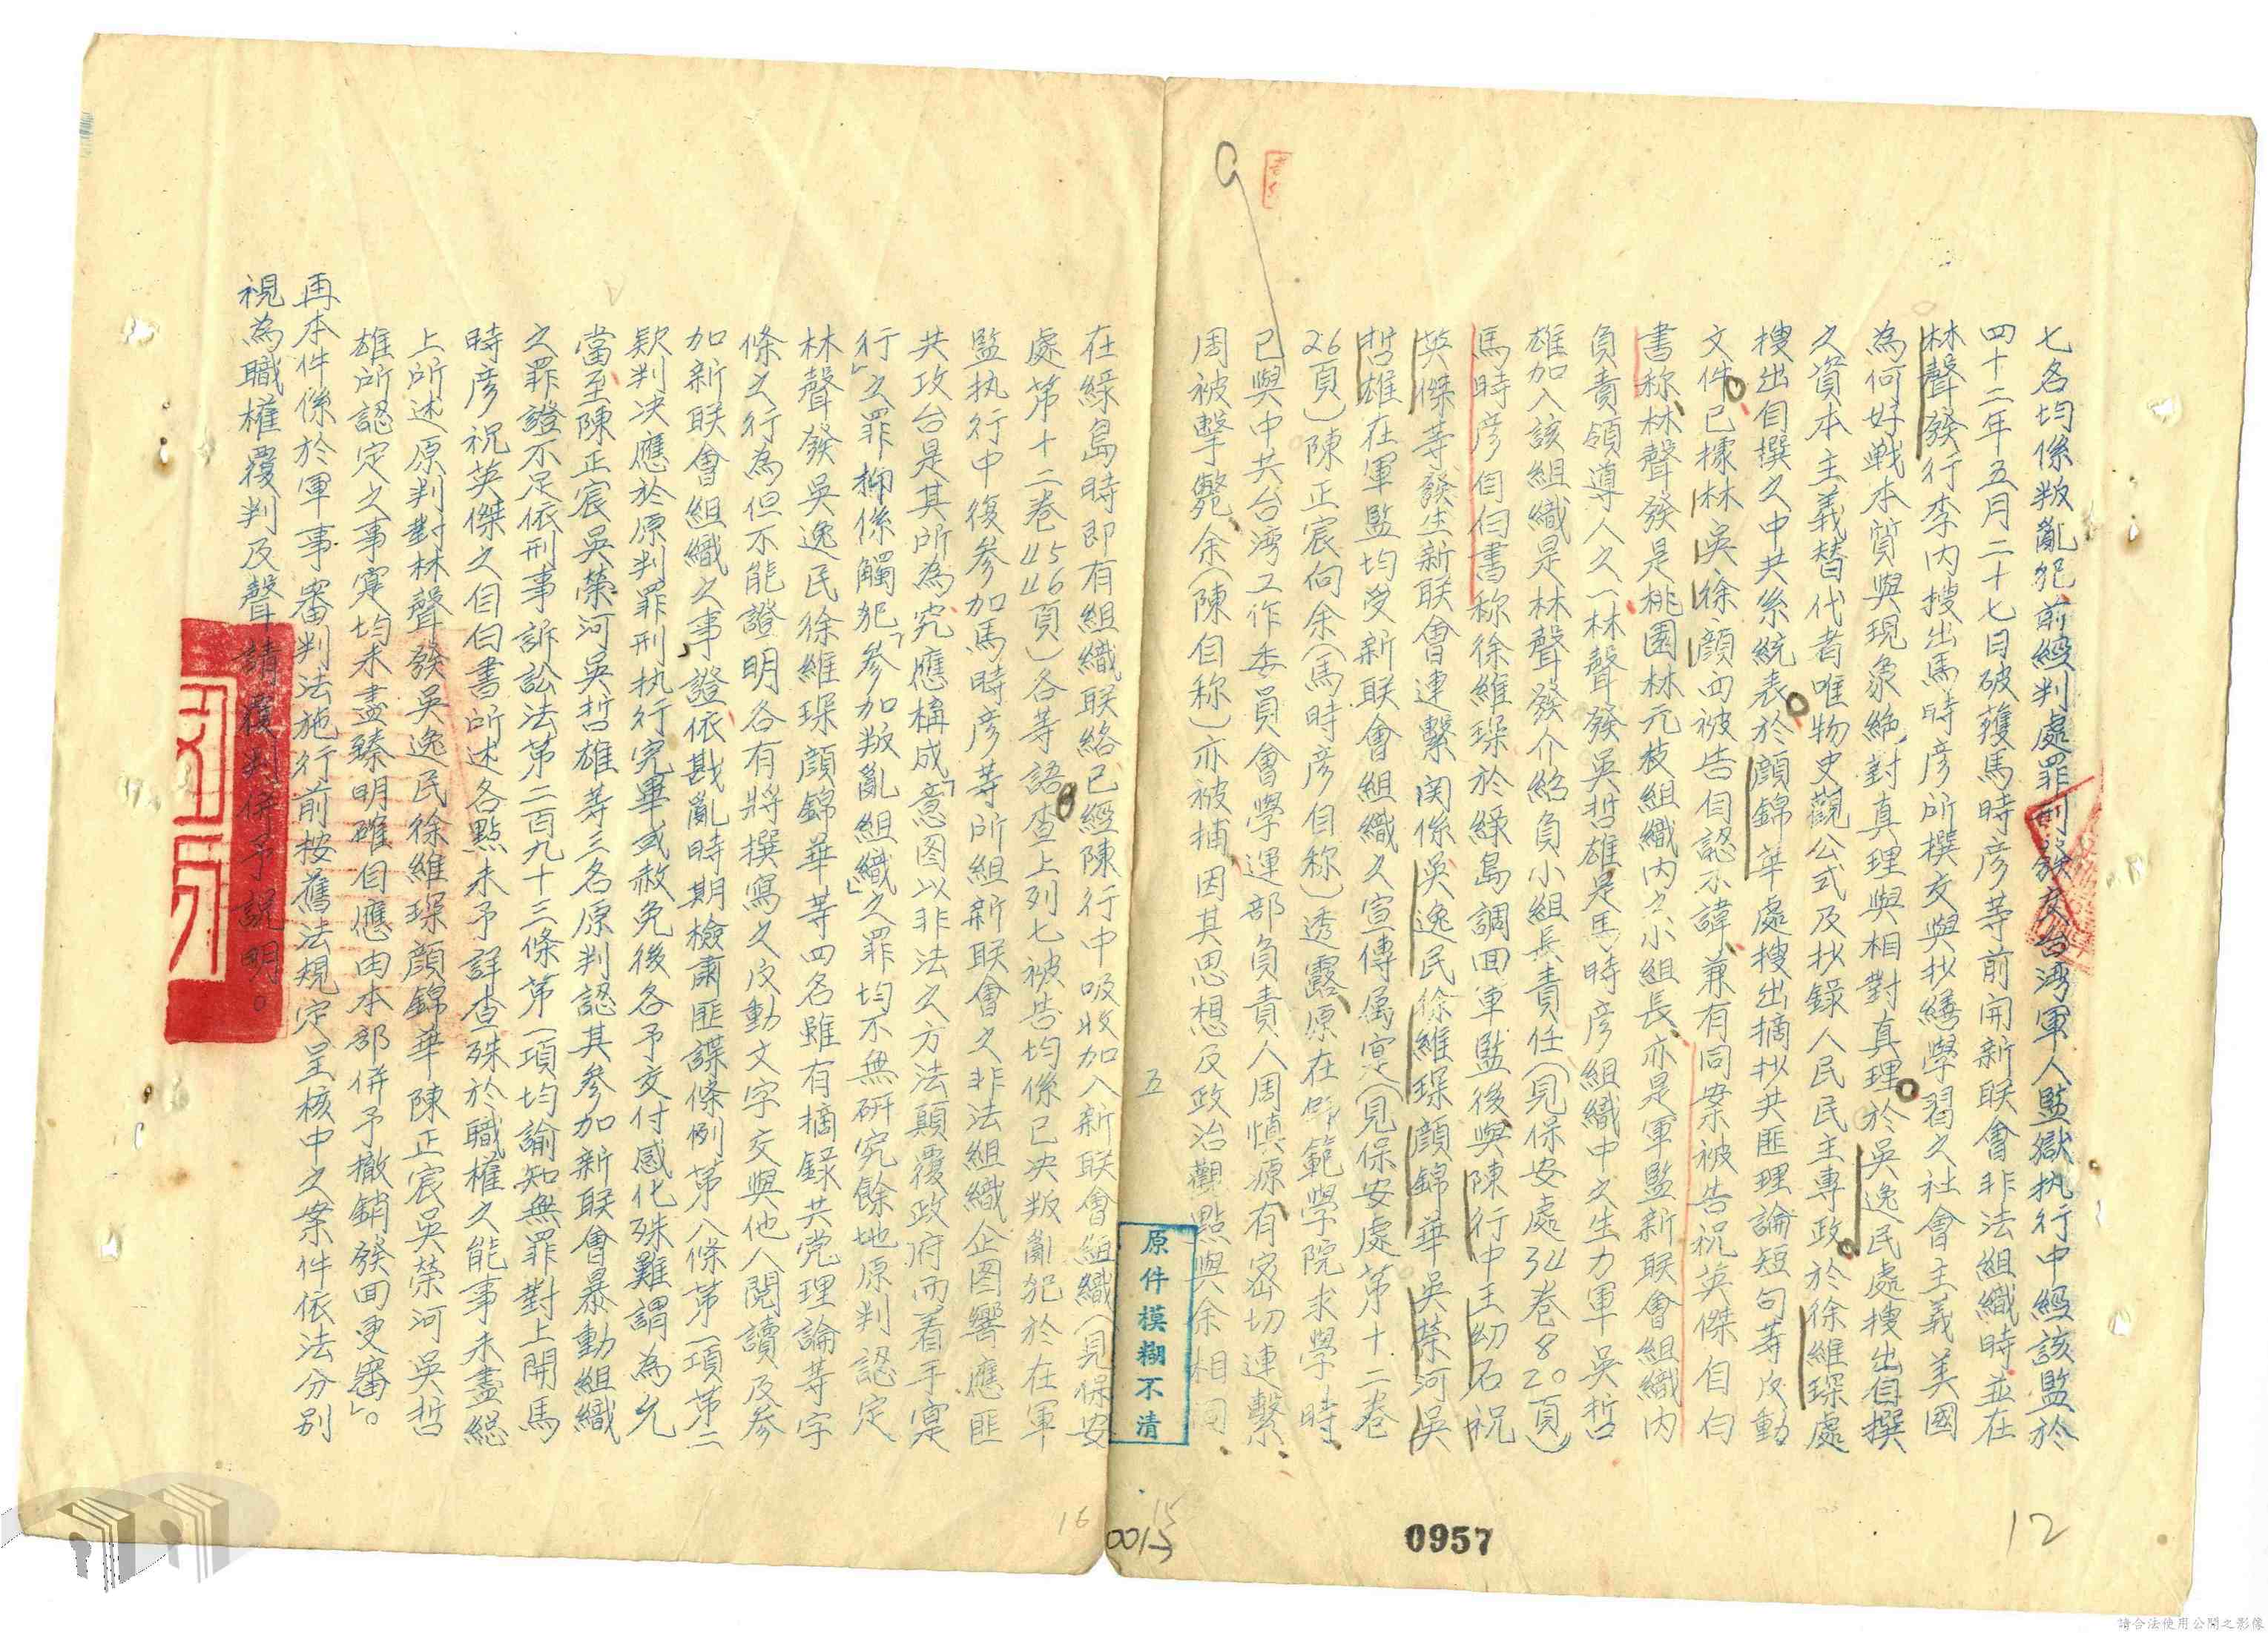 七名均係叛亂犯前經判處罪刑發交台湾軍人監獄执行中經該監於
四十二年五月二十七日破獲馬時彦等前開新联會非法組織時並在
林聲發行李内搜出馬時彦所撰文與抄繕學習之社會主義美國
為何好戰本質與現象絶對真理與相對真理於吳逸民處搜出自撰
之資本主義替代者唯物史觀公式及抄錄人民民主專政於徐維琛處
搜出自撰之中共系統表於顔錦华處搜出摘抄共匪理論短句等反動
文件已據林吳徐顔四被告自認不諱兼有同案被告祝英傑自白
書称林聲發是桃園林元枝組織内之小組長亦是軍監新联會組織内
負責領導人之一林聲發吳哲雄是馬時彦組織中之生力軍吳哲
雄加入該組織是林聲發介紹負小組長責任(見保安處34卷820頁)
馬時彦自白書称徐維琛於綠島調回軍監後與陳行中王幼石祝
英傑等發生新联會連繫関係吳逸民徐維琛顔錦華吳荣河吳
哲雄在軍監均受新联會組織之宣傳属寔(見保安處第十二卷
26頁)陳正宸向余(馬時彦自称)透露原在師範學院求學時
已與中共台湾工作委員會學運部負責人周慎源有密切連繫
周被擊斃余(陳自称)亦被捕因其思想及政治觀點與余相同
五
在綠島時即有組織联絡已經陳行中吸收加入新联會組織(見保安
處第十二卷45 46頁)各等語查上列七被告均係已决叛亂犯於在軍
監执行中復参加馬時彦等所組新联會之非法組織企图響應匪
共攻台是其所為究應構成「意图以非法之方法顛覆政府而着手寔
行」之罪抑係觸犯「参加叛亂組織」之罪均不無研究餘地原判認定
林聲發吳逸民徐維琛顔錦華等四名雖有摘録共党理論等字
條之行為但不能證明各有將撰寫之反動文字交與他人閱讀及参
加新联會組織之事證依戡亂時期檢肅匪諜條例第八條第一項第二
欵判决應於原判罪刑执行完畢或赦免後各予交付感化殊難謂為允
當至陳正宸吳榮河吳哲雄等三名原判認其参加新联會暴動組織
之罪證不足依刑事訴訟法第二百九十三條第一項均諭知無罪對上開馬
時彦祝英傑之自白書所述各點未予詳查殊於職權之能事未盡総
上所述原判對林聲發吳逸民徐維琛顔錦華陳正宸吳荣河吳哲
雄所認定之事寔均未盡臻明確自應由本部併予撤銷發回更審」。
再本件係於軍事審判法施行前按舊法規定呈核中之案件依法分别
視為職權覆判及聲請覆判併予説明。
原件模糊不清
0957
12
15
16
0015
請合法使用公開之影像